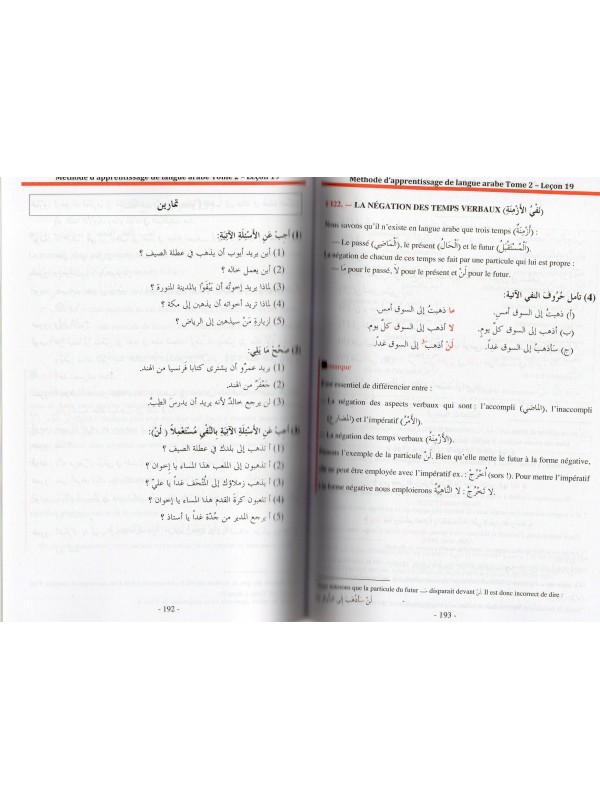 Méthode d'apprentissage de langue arabe Tome 2 – Leçon 19
تمارين
(1) أجِبْ عَنِ الأَسْئِلَةِ الآتِيَةِ:
(1) أين يريد أيوب أن يذهب في عطلة الصيف ؟
(2) أين يعمل خاله ؟
(3) لماذا يريد إخوتُه أن يَبْقَوْا بالمدينة المنورة ؟
(4) لماذا تريد أخواته أن يذهبن إلى مكة ؟
(5) لزيارةِ مَنْ سيذهبن إلى الرياض ؟
صَحِّحْ مَا يَلِي:
(1) يريد عمرٌو أن يشترى كتابا فَرنسيا من الهند.
(2) جَعْفَرٌ من الهند.
(3) لن يرجع خالدٌ لأنه يريد أن يدرسَ الطِبَّ.
أجِبْ عَنِ الأَسْئِلَةِ الآتِيَةِ بالنَّفْي مُسْتَعْمِلاً ( لَنْ):
(1) أ تذهب إلى بلدك في عطلة الصيف ؟
(2) أ تذهبون إلى الملعب هذا المساء يا إخوان ؟
(3) أ يذهب زملاؤك إلى المُتْحَفِ غداً يا عليُّ ؟
(4) أ تلعبون كرةَ القدم هذا المساء يا إخوان ؟
(5) أ يرجع المدير من جُدَّةَ غداً يا أستاذ ؟
- 192 -
Méthode d'apprentissage de langue arabe Tome 2 – Leçon 19
§ 122. — LA NÉGATION DES TEMPS VERBAUX (نَفْيُ الأَزْمِنَةِ)
Nous savons qu'il n'existe en langue arabe que trois temps (أَزْمِنَةٌ) :
— Le passé (الْمَاضِي), le présent (الْحَالُ) et le futur (الْمُسْتَقْبَلُ).
La négation de chacun de ces temps se fait par une particule qui lui est propre :
— مَا pour le passé, لا pour le présent et لَنْ pour le futur.
(4) تأمل حُرُوفَ النفي الآتية:
(أ) ذهبتُ إلى السوق أمسِ. ما ذهبتُ إلى السوق أمس.
(ب) أذهب إلى السوق كلَّ يومٍ. لا أذهب إلى السوق كلَّ يوم.
(ج) سَأذهبُ إلى السوق غداً. لَنْ أذهبَ إلى السوق غداً.
essentiel de différencier entre :
La négation des aspects verbaux qui sont : l'accompli (الماضي), l'inaccompli
(المضارع) et l'impératif (الأَمْرُ).
La négation des temps verbaux (الأَزْمِنَة).
l'exemple de la particule لَنْ. Bien qu'elle mette le futur à la forme négative,
ne peut être employée avec l'impératif ex. : اُخْرُجْ (sors !). Pour mettre l'impératif
forme négative nous emploierons لا النَّاهِيَةُ : لا تَخْرُجْ.
que la particule du futur سَـ disparait devant لَنْ. Il est donc incorrect de dire :
لَنْ سَأذهب إلى
- 193 -